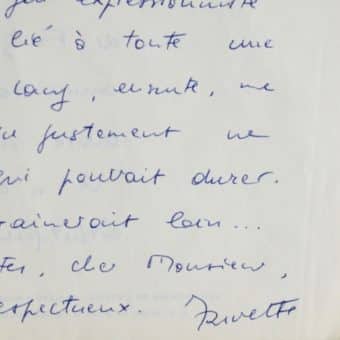 expressionniste
lié à toute une
Lang, ensuite, me
justement ne
qui pouvait durer.
rainerait loin...
tes, cher Monsieur,
espectueux. Rivette